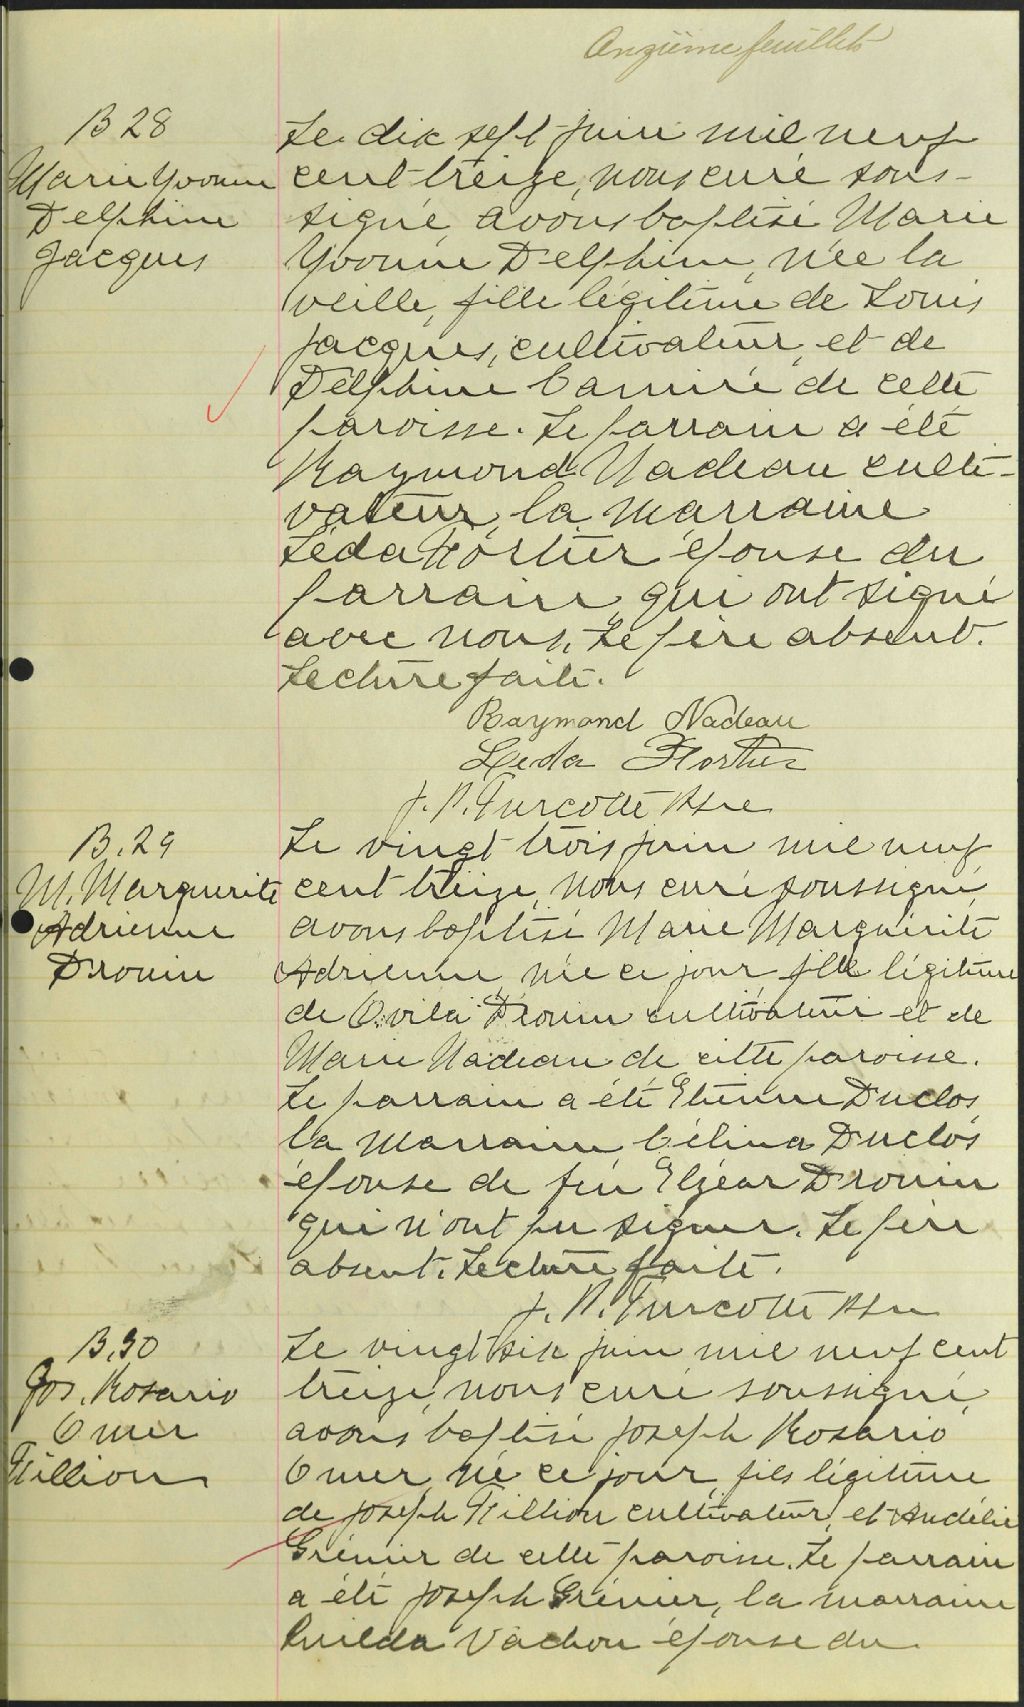 Onzième feuillet
B 28
Marie Yvonne
Delphine
Jacques
Le dix sept juin mil neuf
cent treize, nous curé sous-
signé avons baptisé Marie
Yvonne Delphine, née la
veille, fille légitime de Louis
Jacques, cultivateur, et de
Delphine Camiré de cette
paroisse. Le parrain a été
Raymond Nadeau culti-
vateur, la marraine
Léda Fortier épouse du
parrain, qui ont signé
avec nous. Le père absent.
Lecture faite.
Raymond Nadeau
Leda Fortier
J. P. Turcotte Ptre
B. 29
M. Marguerite
Adrienne
Drouin
Le vingt trois juin mil neuf
cent treize, nous curé soussigné,
avons baptisé Marie Marguerite
Adrienne, née ce jour fille légitime
de Ovila Drouin cultivateur et de
Marie Nadeau de cette paroisse.
Le parrain a été Etienne Duclos
la marraine Célina Duclos
épouse de feu Elzéar Drouin
qui n'ont pu signer. Le père
absent. Lecture faite.
J. P. Turcotte Ptre
B. 30
Jos. Rosario
Omer
Fillion
Le vingt six juin mil neuf cent
treize, nous curé soussigné,
avons baptisé Joseph Rosario
Omer, né ce jour, fils légitime
de Joseph Fillion cultivateur, et Audélie
Grénier de cette paroisse. Le parrain
a été Joseph Grénier, la marraine
Vachon épouse du